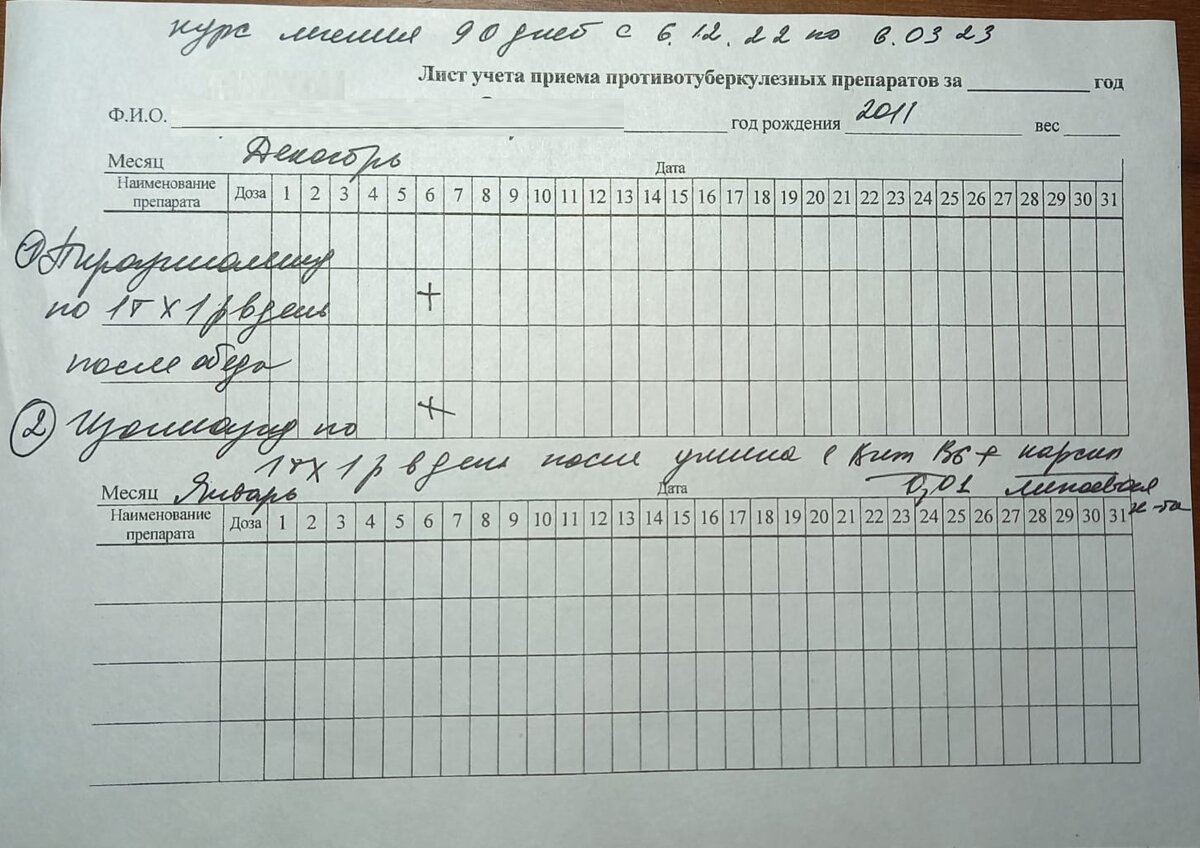 курс лечения 90 дней с 6.12.22 по 6.03 23
Лист учета приема противотуберкулезных препаратов за год
Ф.И.О. год рождения 2011 вес
Месяц Декабрь Дата
Наименование препарата Доза 1 2 3 4 5 6 7 8 9 10 11 12 13 14 15 16 17 18 19 20 21 22 23 24 25 26 27 28 29 30 31
① Пиразинамид
по 1т х 1 р в день +
после обеда
② Изониазид по +
1т х 1 р в день после ужина с Вит В6 + карсил
0,01 липоевая к-та
Месяц Январь Дата
Наименование препарата Доза 1 2 3 4 5 6 7 8 9 10 11 12 13 14 15 16 17 18 19 20 21 22 23 24 25 26 27 28 29 30 31